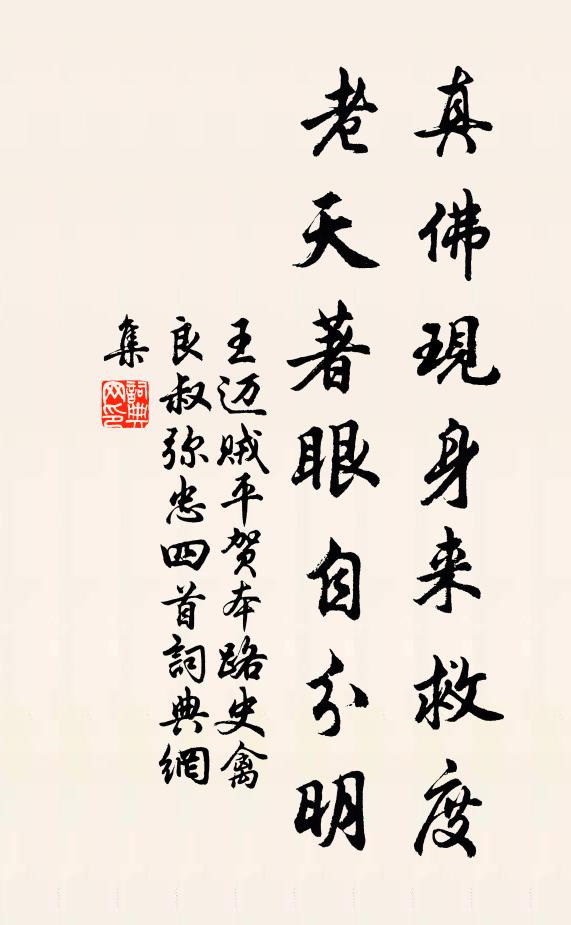 真佛現身来救度
老天著眼自分明
王迈贼平贺本路史禽
良叔弥忠四首詞典網
集
詞典網印